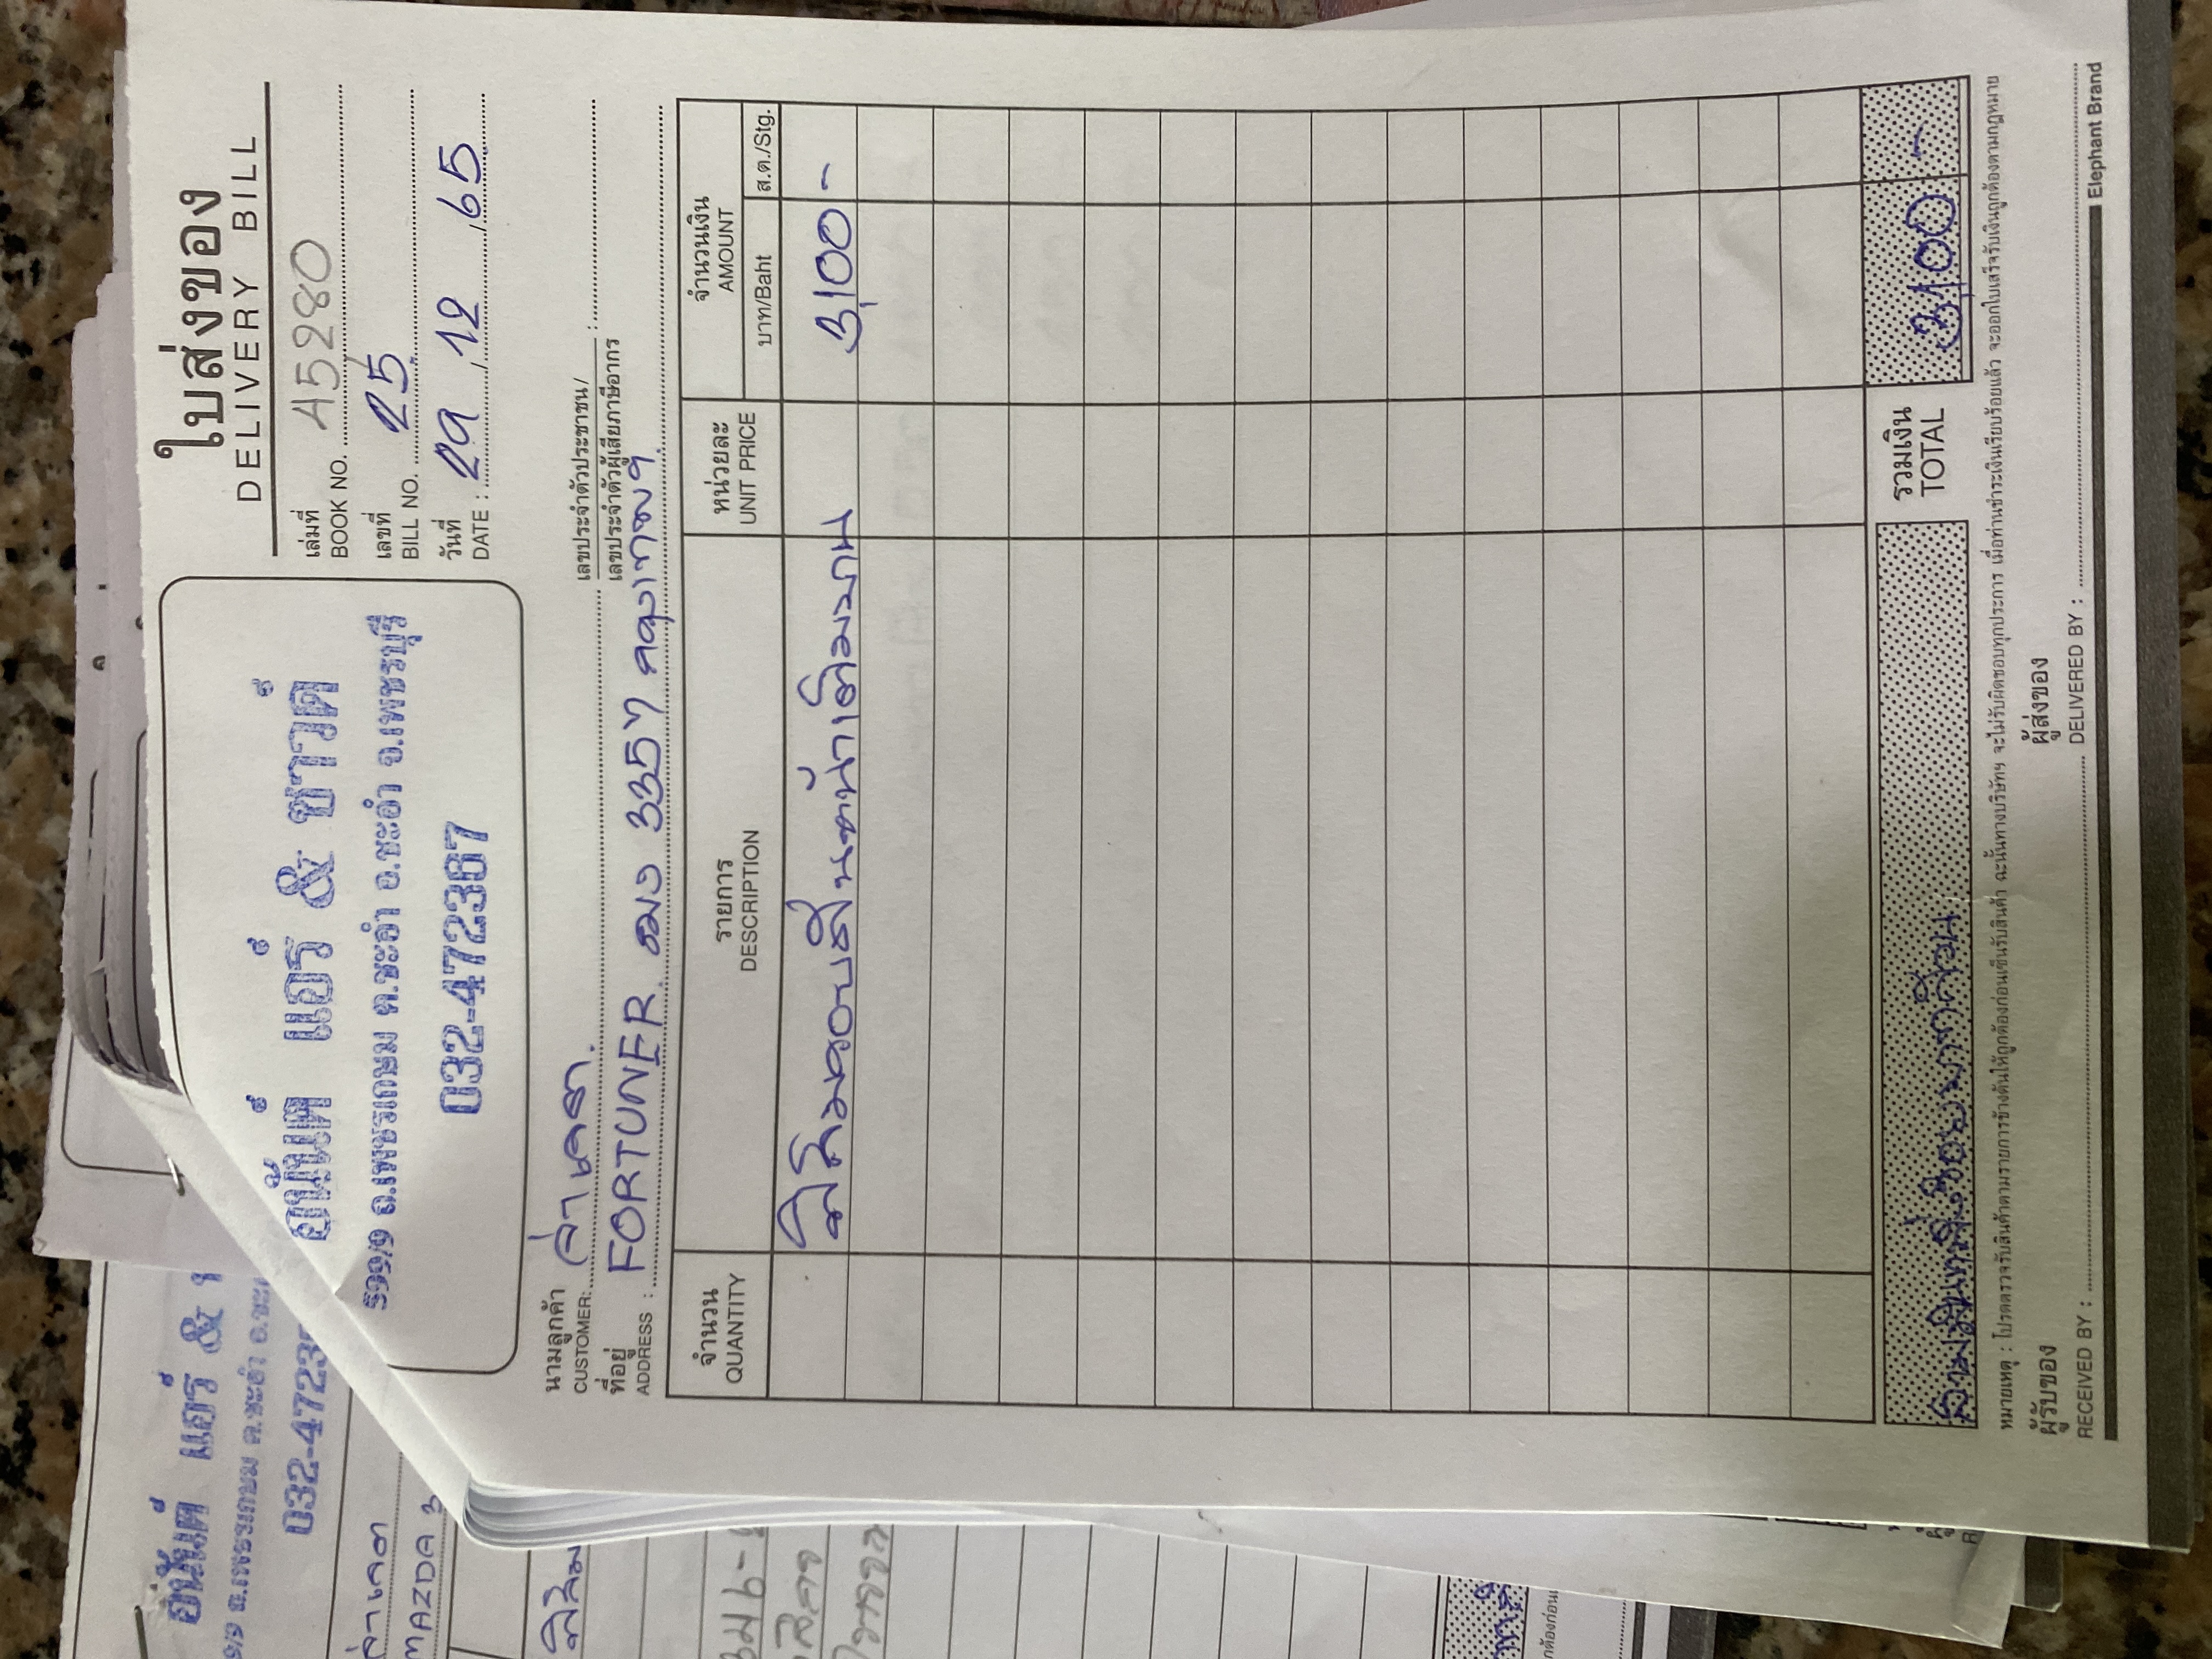 ใบส่งของ
DELIVERY BILL
อนันต์ แอร์ & ซาวด์
ถ.เพชรเกษม ต.ชะอำ อ.ชะอำ จ.เพชรบุรี
032-472387
เล่มที่
BOOK NO. A5280
เลขที่
BILL NO. 25
วันที่
DATE : 29, 12, 65
นามลูกค้า
CUSTOMER:
เลขประจำตัวประชาชน/
เลขประจำตัวผู้เสียภาษีอากร :
ที่อยู่
ADDRESS : FORTUNER 3357 กรุงเทพฯ
จำนวน
QUANTITY
รายการ
DESCRIPTION
หน่วยละ
UNIT PRICE
จำนวนเงิน
AMOUNT
บาท/Baht
ส.ต./Stg.
ฟิล์มรอบคันหน้าเต็มบาน 3,100 -
สามพันหนึ่งร้อยบาทถ้วน
รวมเงิน
TOTAL
3,100 -
หมายเหตุ : โปรดตรวจรับสินค้าตามรายการข้างต้นให้ถูกต้องก่อนเซ็นรับสินค้า ฉะนั้นทางบริษัทฯ จะไม่รับผิดชอบทุกประการ เมื่อท่านชำระเงินเรียบร้อยแล้ว จะออกใบเสร็จรับเงินถูกต้องตามกฎหมาย
ผู้รับของ
RECEIVED BY :
ผู้ส่งของ
DELIVERED BY :
Elephant Brand
อนันต์ แอร์ &
ถ.เพชรเกษม ต.ชะอำ อ.ชะ
032-4723
MAZDA 3
ฟิล์ม